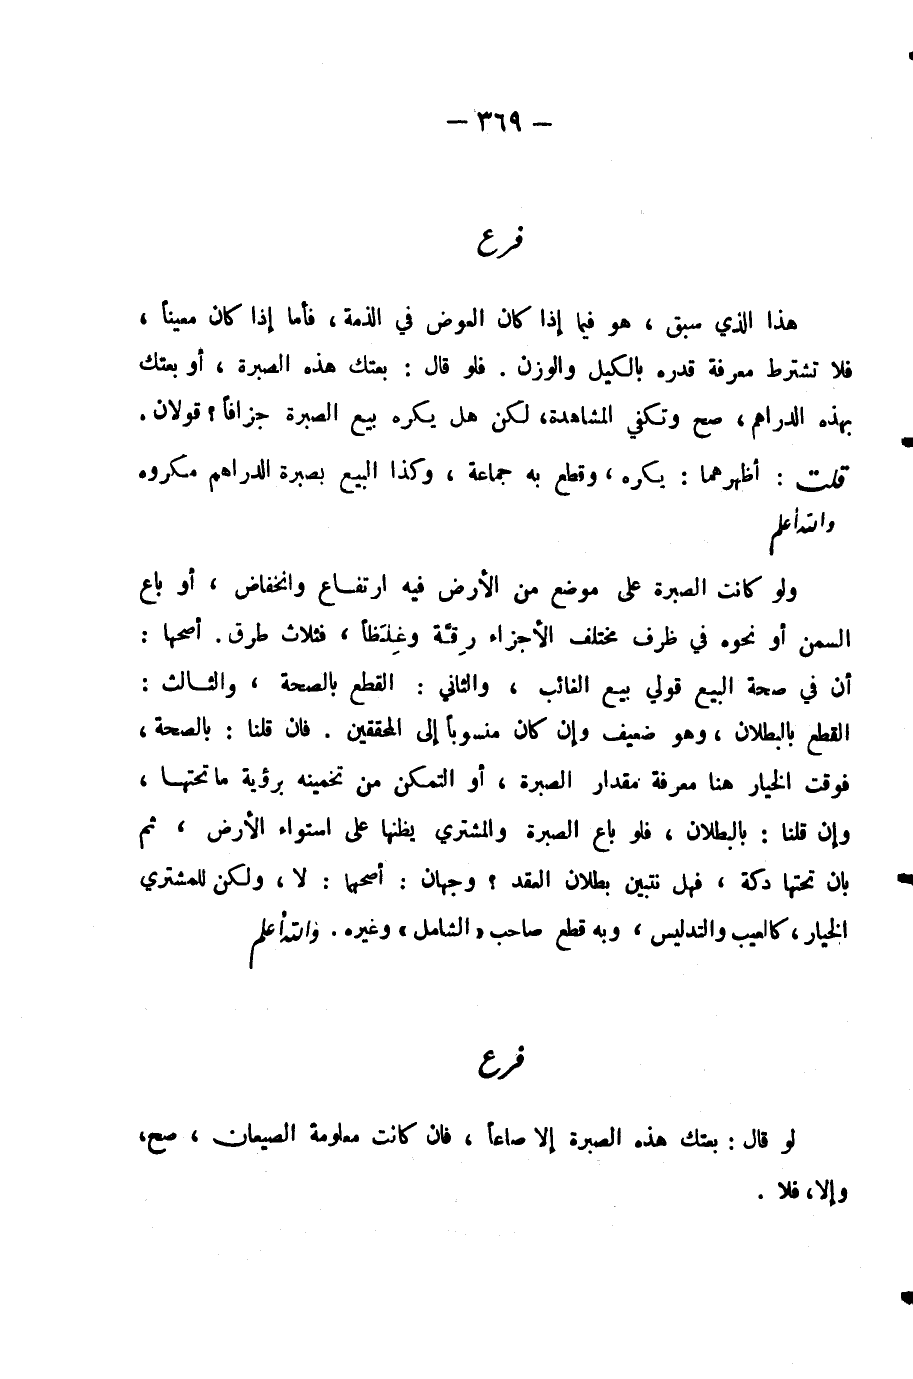 — ٣٦٩ —
فرع
هذا الذي سبق ، هو فيما إذا كان العوض في الذمة ، فأما إذا كان معيناً ،
فلا تشترط معرفة قدره بالكيل والوزن . فلو قال : بعتك هذه الصبرة ، أو بعتك
بهذه الدراهم ، صح وتكفي المشاهدة، لكن هل يكره بيع الصبرة جزافاً ؟ قولان .
قلت : أظهرهما : يكره ، وقطع به جماعة ، وكذا البيع بصبرة الدراهم مكروه
والله أعلم
ولو كانت الصبرة على موضع من الأرض فيه ارتفـاع وانخفاض ، أو باع
السمن أو نحوه في ظرف مختلف الأجزاء رِقـَّة وغِلَظاً ، فثلاث طرق . أصحها :
أن في صحة البيع قولي بيع الغائب ، والثاني : القطع بالصحة ، والثـالث :
القطع بالبطلان ، وهو ضعيف وإن كان منسوباً إلى المحققين . فان قلنا : بالصحة ،
فوقت الخيار هنا معرفة مقدار الصبرة ، أو التمكن من تخمينه برؤية ما تحتهـا ،
وإن قلنا : بالبطلان ، فلو باع الصبرة والمشتري يظنها على استواء الأرض ، ثم
بان تحتها دكة ، فهل نتبين بطلان العقد ؟ وجهان : أصحها : لا ، ولكن للمشتري
الخيار ، كالعيب والتدليس ، وبه قطع صاحب « الشامل » وغيره . والله أعلم
فرع
لو قال : بعتك هذه الصبرة إلا صاعاً ، فان كانت معلومة الصيعان ، صح،
وإلا، فلا .